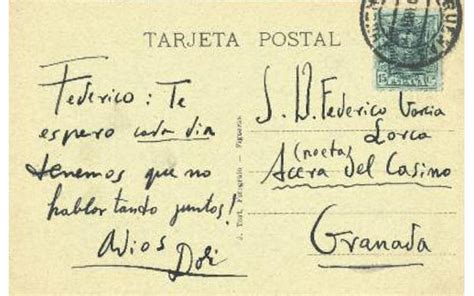 TARJETA POSTAL
Federico: Te
espero cada dia
tenemos que no
hablar tando juntos!
Adios Dali
J. Tort, Fotógrafo - Figueras
S. D. Federico Garcia
Lorca
(poeta)
Acera del Casino
Granada
15 ESPAÑA